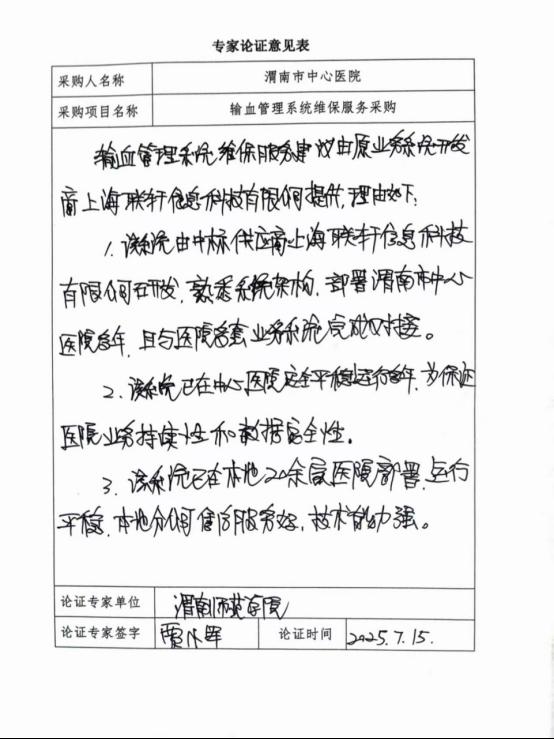 专家论证意见表
采购人名称 渭南市中心医院
采购项目名称 输血管理系统维保服务采购
输血管理系统维保服务建议由原业务系统开发
商上海联轩信息科技有限公司提供,理由如下:
1. 该系统由中标供应商上海联轩信息科技
有限公司研发,熟悉系统架构,部署渭南市中心
医院多年,且与医院多套业务系统完成对接。
2. 该系统已在中心医院安全平稳运行多年,为保证
医院业务持续性和数据安全性。
3. 该系统已在本地20余家医院部署,运行
平稳,本地公司售后服务好,技术能力强。
论证专家单位 渭南师范学院
论证专家签字 论证时间 2025.7.15.